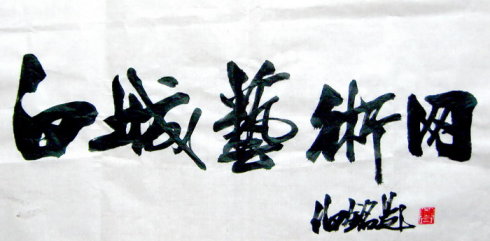 白城藝術网